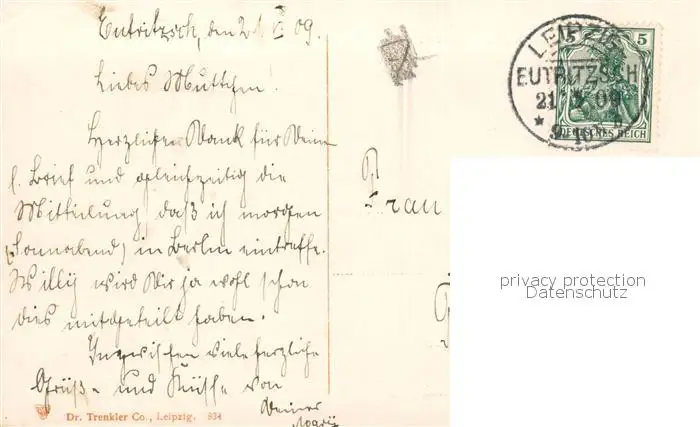 Eutritzsch, den 21. V 09.
Liebes Muttchen!
Herzlichen Dank für Deinen
l. Brief und gleichzeitig die
Mitteilung, daß ich morgen
(Sonnabend) in Berlin eintreffe.
Willy wird Dir ja wohl schon
dies mitgeteilt haben.
Inzwischen viele herzliche
Grüße und Küsse von
Deiner
Dr. Trenkler Co., Leipzig. 834
Frau
LEIPZIG
EUTRITZSCH
21 5 09
5
DEUTSCHES REICH
privacy protection
Datenschutz